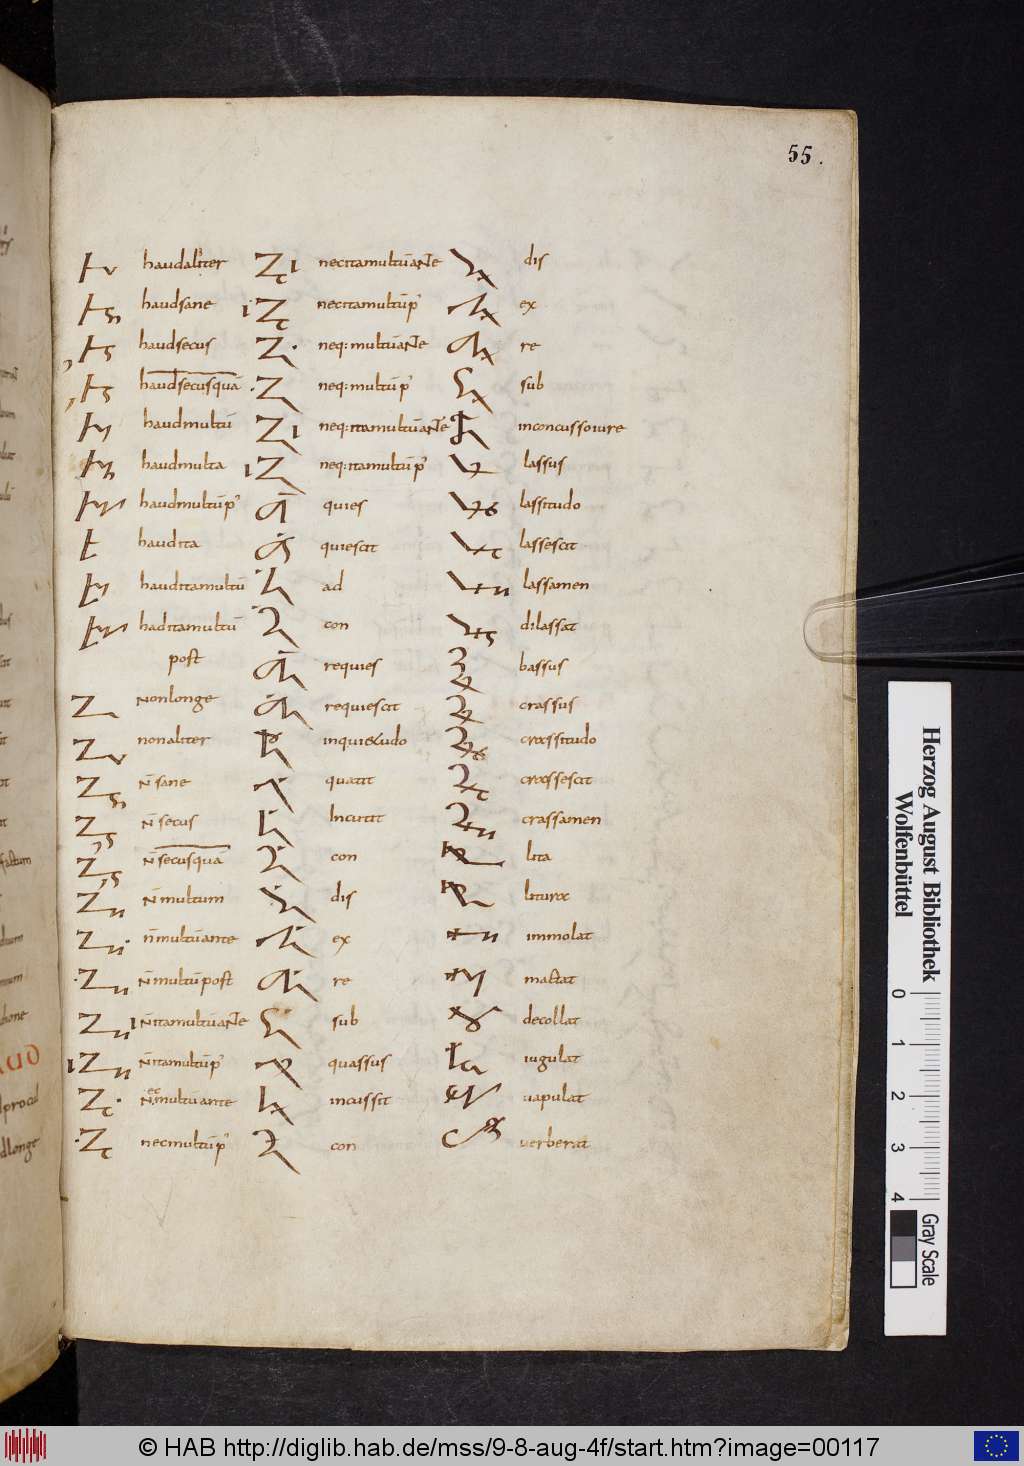 55.
haudaliter
haudsane
haudsecus
haudsecusquā
haudmultū
haudmulta
haudmultūp'
haudita
hauditamultū
haditamultū
post
nonlonge
nonaliter
n̄ sane
n̄ secus
n̄ secusquā
n̄ multum
n̄ multūante
n̄ multūpost
n̄itamultūante
n̄itamultūp'
necmultūante
necmultūp'
necitamultūante
necitamultūp'
neq:multūante
neq:multūp'
neq:itamultūante
neq:itamultūp'
quies
quiescit
ad
con
requies
requiescit
quatit
Incutit
con
dis
ex
re
sub
quassus
incussit
con
dis
ex
re
sub
inconcussoiure
lassus
lassitudo
lassescit
lassamen
dilassat
bassus
crassus
crassitudo
crassescit
crassamen
lita
litura
immolat
mactat
decollat
iugulat
uapulat
uerberat
Herzog August Bibliothek
Wolfenbüttel
0 1 2 3 4
Gray Scale
© HAB http://diglib.hab.de/mss/9-8-aug-4f/start.htm?image=00117